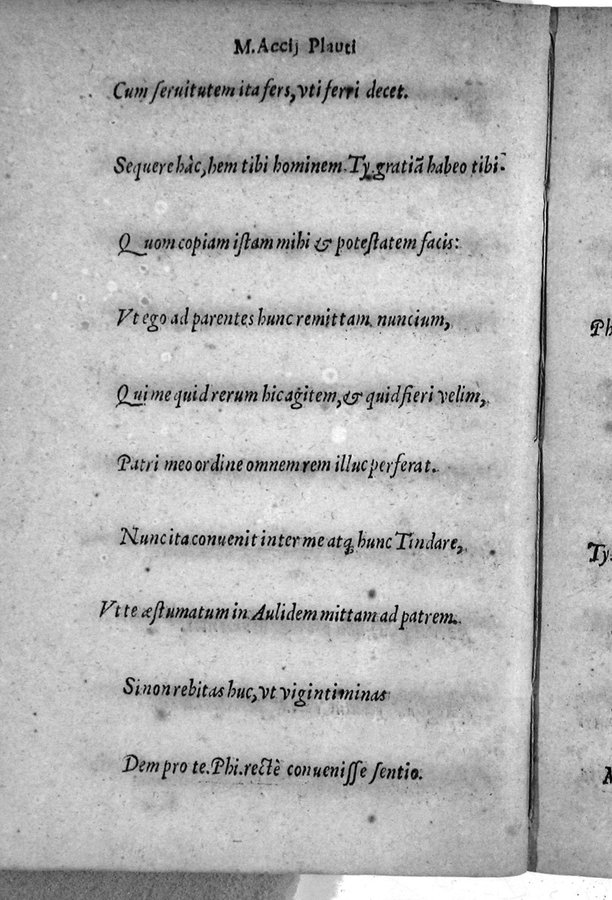 M. Accij Plauti
Cum ſeruitutem ita fers, vti ferri decet.
Sequere hàc, hem tibi hominem. Ty. gratiã habeo tibi.
Quom copiam iſtam mihi & poteſtatem facis:
Vt ego ad parentes hunc remittam nuncium,
Qui me quid rerum hic agitem, & quid fieri velim,
Patri meo ordine omnem rem illuc perferat.
Nunc ita conuenit inter me atq; hunc Tindare,
Vt te æſtumatum in Aulidem mittam ad patrem.
Si non rebitas huc, vt viginti minas
Dem pro te. Phi. rectè conueniſſe ſentio.
Ph
Ty.
A